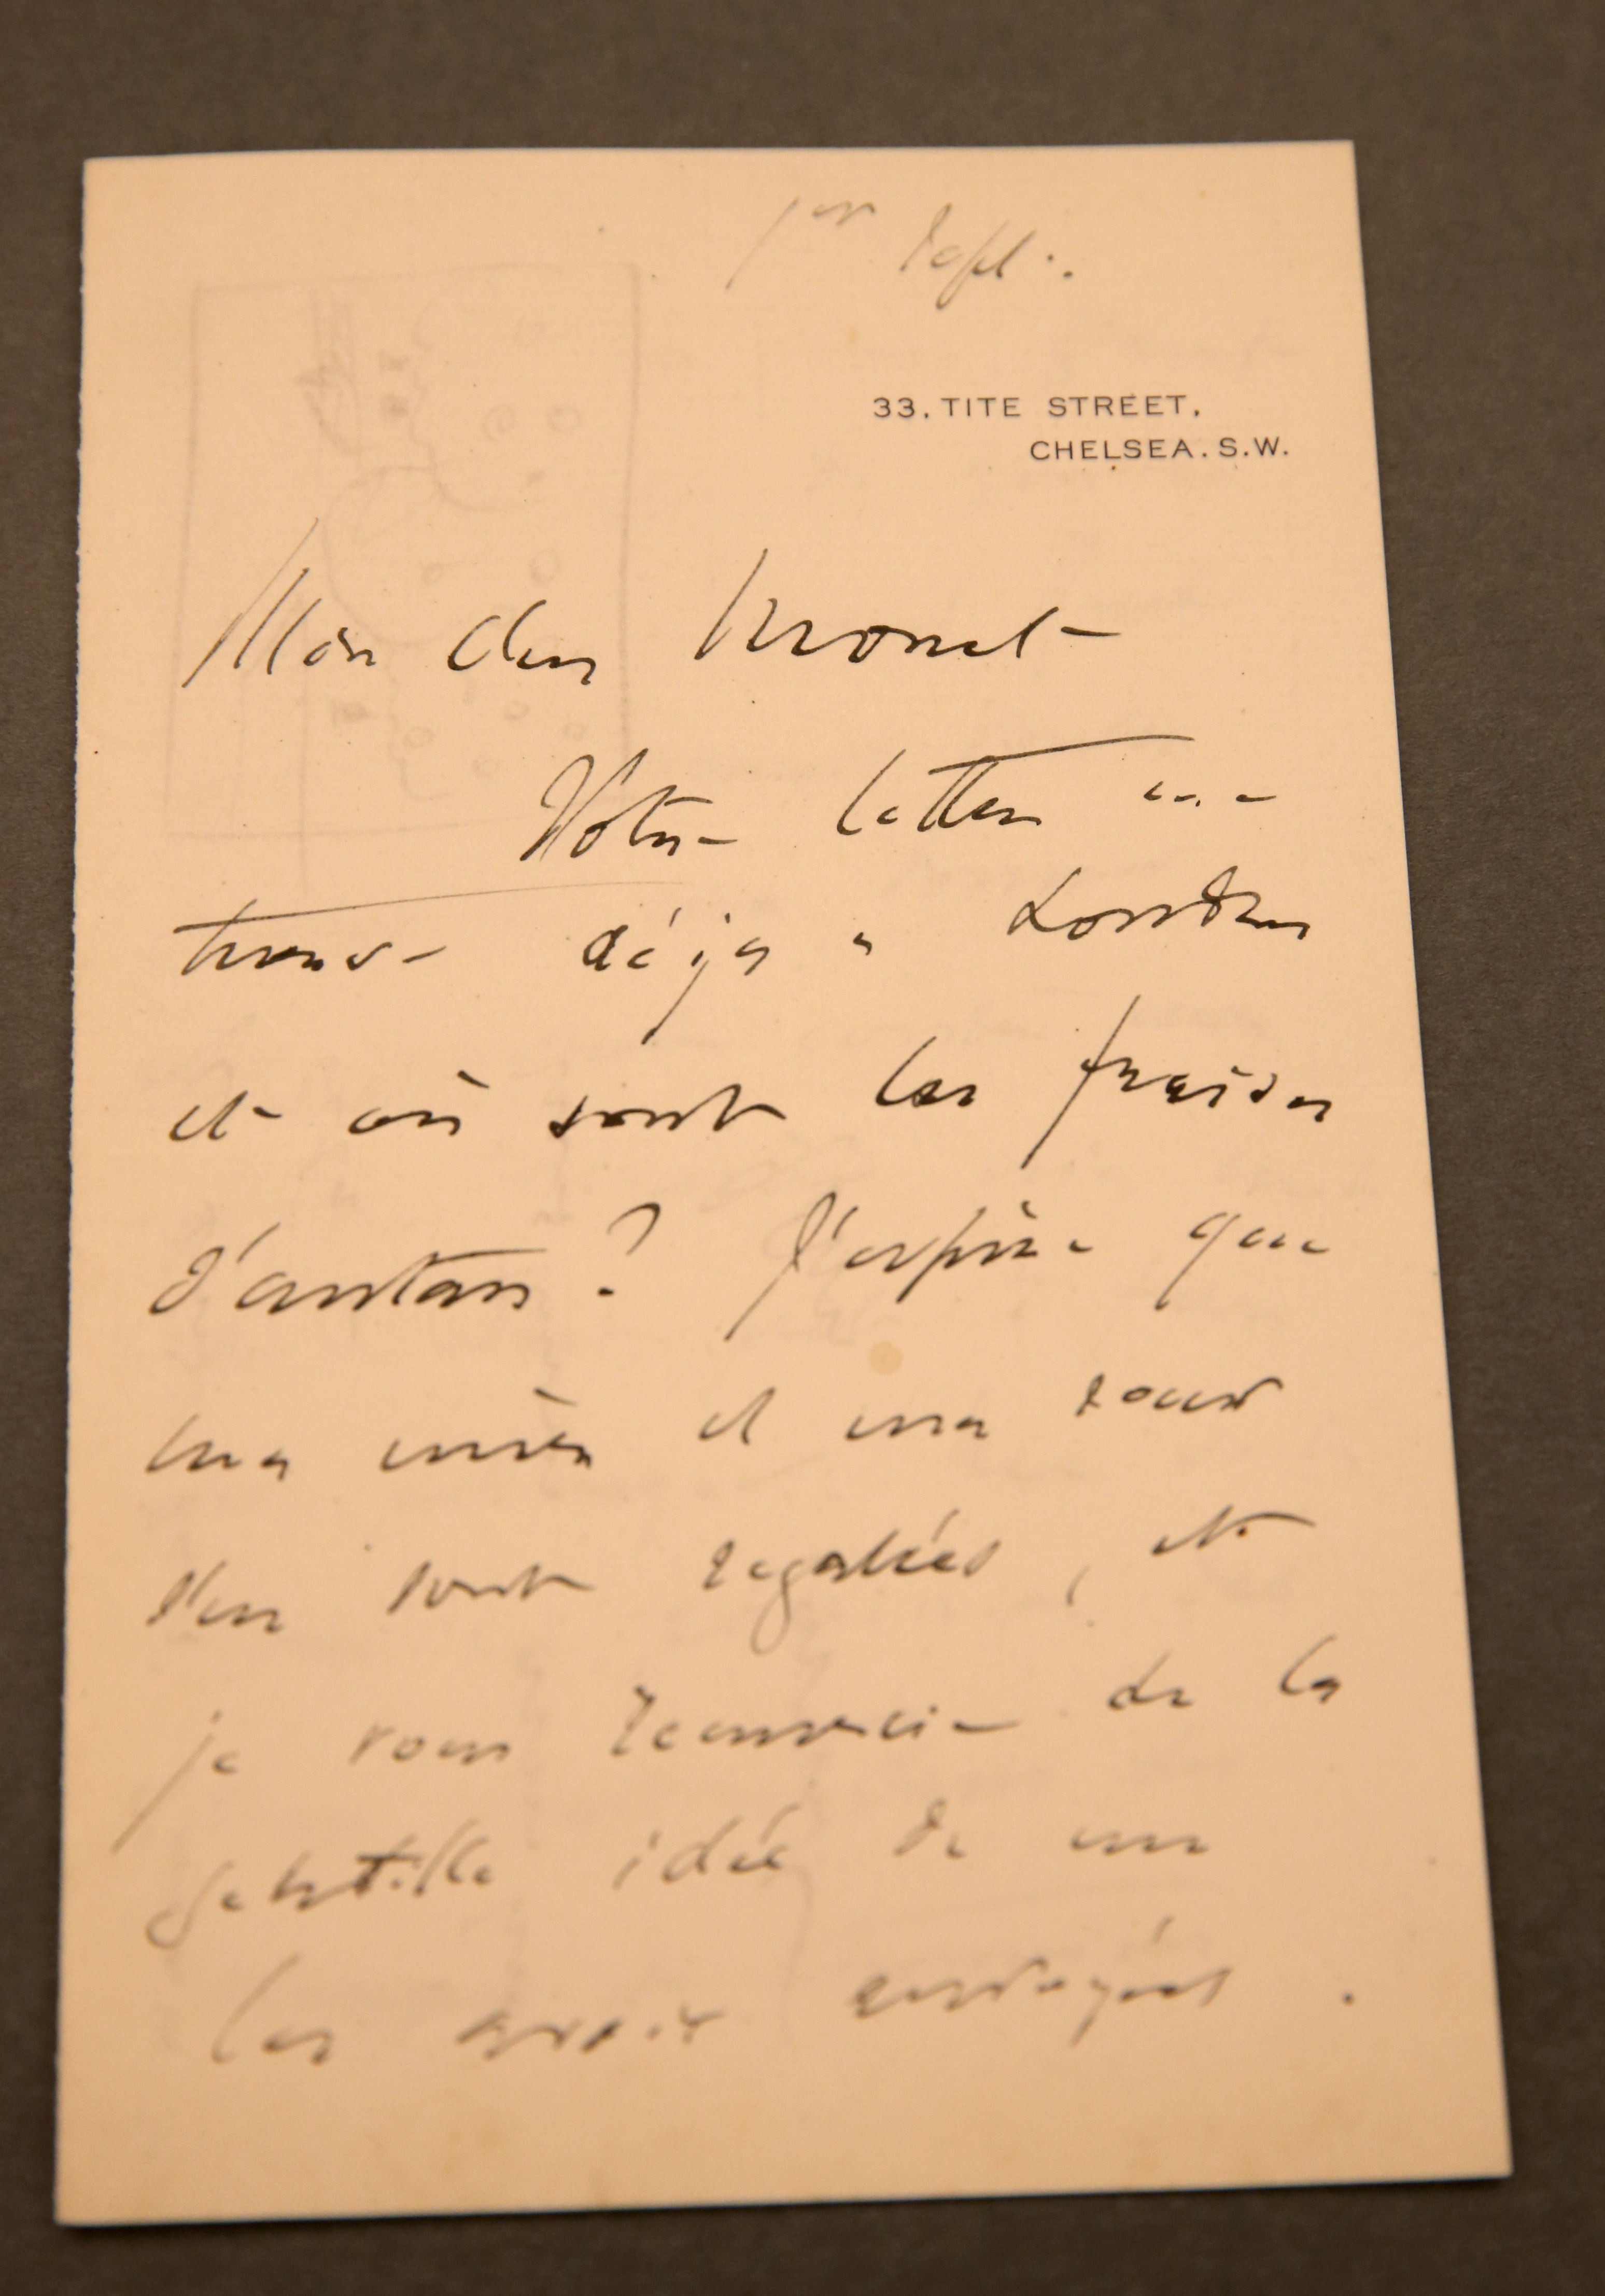 1er Sept.
33. TITE STREET.
CHELSEA. S.W.
Mon cher Monet
Votre lettre me
trouve déjà a Londres
et où sont les fraises
d'antan? J'espère que
ma mère et ma soeur
s'en sont régalées, et
je vous remercie de la
gentille idée de me
les avoir envoyées.